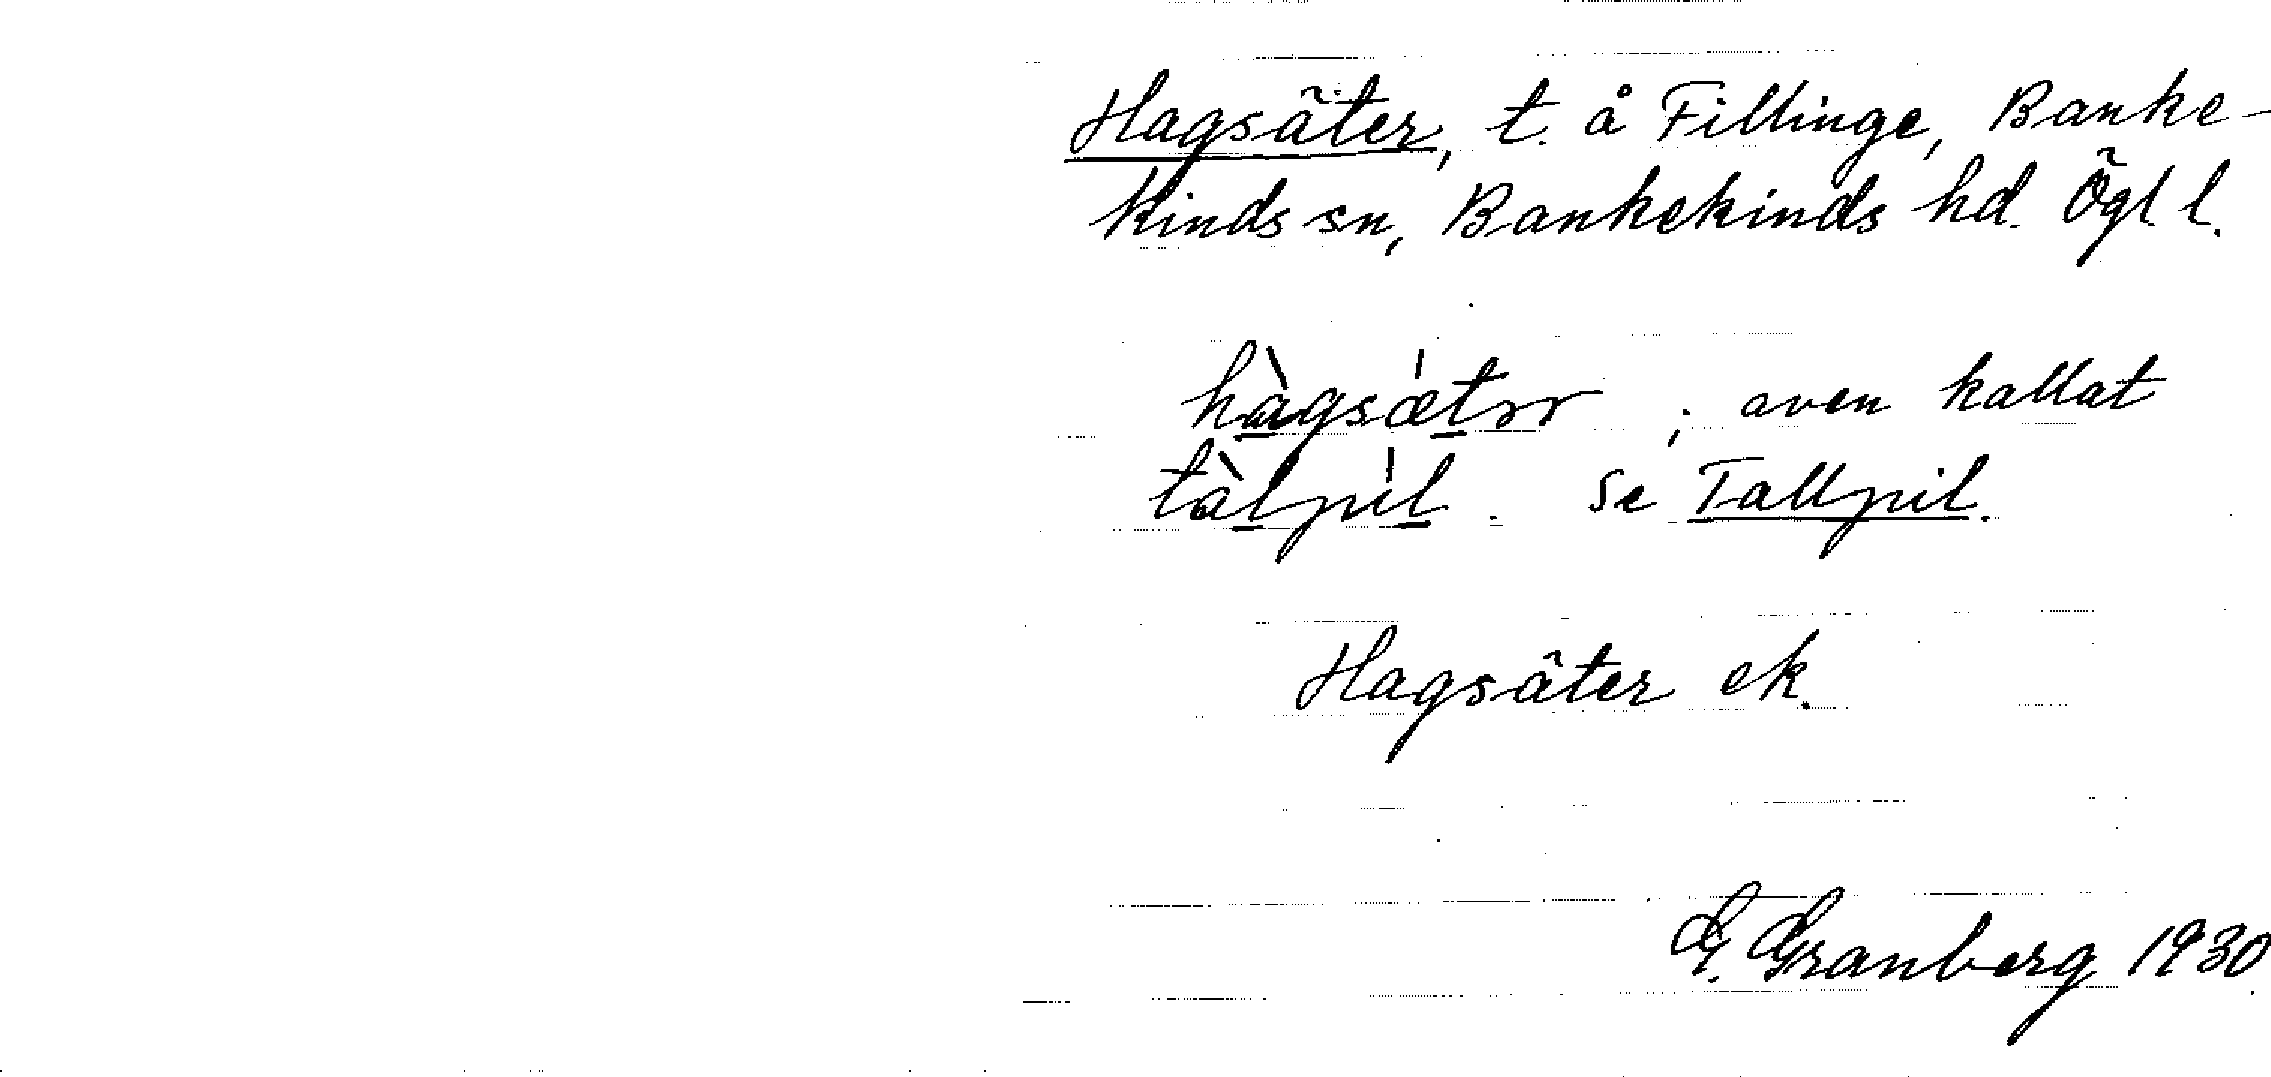 Hagsäter, t. å Fillinge, Banke-
kinds sn, Bankekinds hd. Ögl l.
hàgsætər ; även kallat
tàlpil. Se Tallpil.
Hagsäter ek.
G. Granberg 1930